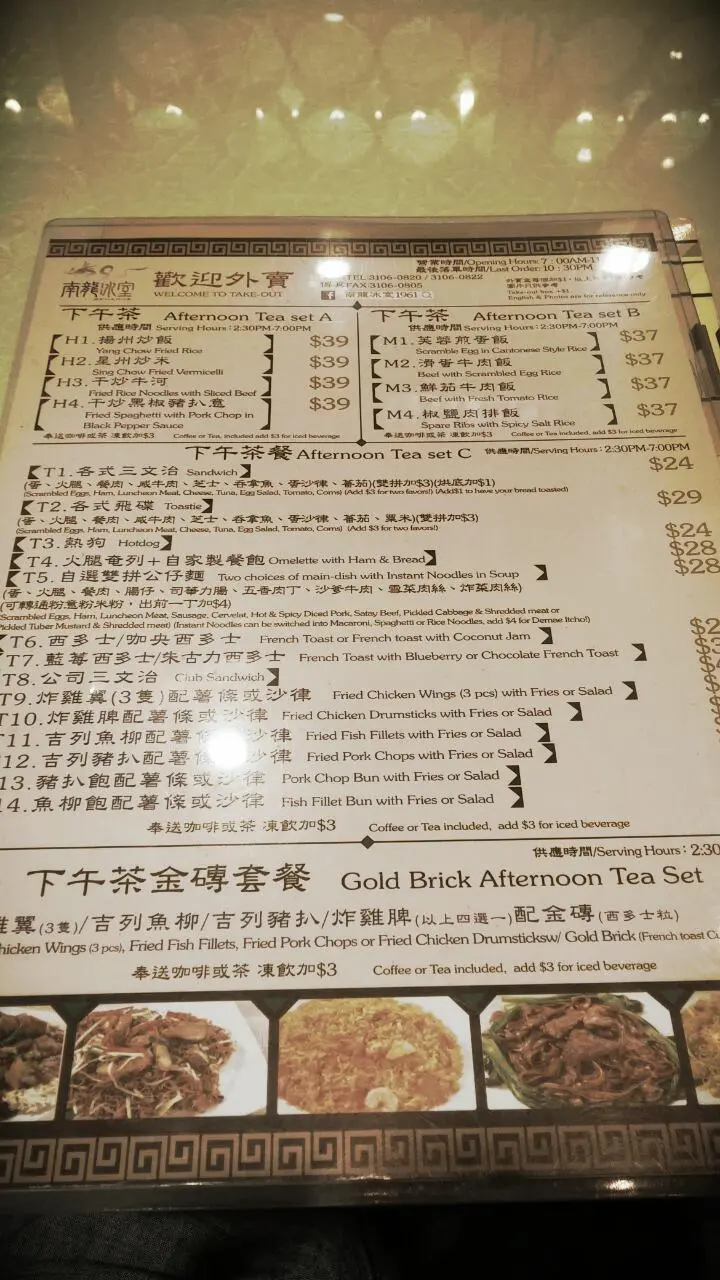 南龍冰室
歡迎外賣
WELCOME TO TAKE-OUT
營業時間/Opening Hours: 7 : 00AM-11
最後落單時間/Last Order: 10 : 30PM
TEL 3106-0820 / 3106-0822
FAX 3106-0805
南龍冰室1961
圖片只供參考
Take-out box +$1
English & Photos are for reference only
下午茶 Afternoon Tea set A
供應時間 Serving Hours : 2:30PM-7:00PM
H1.揚州炒飯 $39
Yang Chow Fried Rice
H2.星州炒米 $39
Sing Chow Fried Vermicelli
H3.干炒牛河 $39
Fried Rice Noodles with Sliced Beef
H4.干炒黑椒豬扒意 $39
Fried Spaghetti with Pork Chop in
Black Pepper Sauce
奉送咖啡或茶 凍飲加$3 Coffee or Tea, included add $3 for iced beverage
下午茶 Afternoon Tea set B
供應時間 Serving Hours : 2:30PM-7:00PM
M1.芙蓉煎蛋飯 $37
Scramble Egg in Cantonese Style Rice
M2.滑蛋牛肉飯 $37
Beef with Scrambled Egg Rice
M3.鮮茄牛肉飯 $37
Beef with Fresh Tomato Rice
M4.椒鹽肉排飯 $37
Spare Ribs with Spicy Salt Rice
奉送咖啡或茶 凍飲加$3 Coffee or Tea, included add $3 for iced beverage
下午茶餐 Afternoon Tea set C 供應時間/Serving Hours : 2:30PM-7:00PM
T1.各式三文治 Sandwich $24
(蛋、火腿、餐肉、咸牛肉、芝士、吞拿魚、蛋沙律、蕃茄)(雙拼加$3)(烘底加$1)
(Scrambled Eggs, Ham, Luncheon Meat, Cheese, Tuna, Egg Salad, Tomato, Corns) (Add $3 for two favors!) (Add$1 to have your bread toasted)
T2.各式飛碟 Toastie $29
(蛋、火腿、餐肉、咸牛肉、芝士、吞拿魚、蛋沙律、蕃茄、粟米)(雙拼加$3)
(Scrambled Eggs, Ham, Luncheon Meat, Cheese, Tuna, Egg Salad, Tomato, Corns) (Add $3 for two favors!)
T3.熱狗 Hotdog $24
T4.火腿奄列+自家製餐飽 Omelette with Ham & Bread $28
T5.自選雙拼公仔麵 Two choices of main-dish with Instant Noodles in Soup $28
(蛋、火腿、餐肉、腸仔、司華力腸、五香肉丁、沙爹牛肉、雪菜肉絲、炸菜肉絲)
(可轉通粉意粉米粉，出前一丁加$4)
(Scrambled Eggs, Ham, Luncheon Meat, Sausage, Cervelat, Hot & Spicy Diced Pork, Satay Beef, Pickled Cabbage & Shredded meat or
Pickled Tuber Mustard & Shredded meet) (Instant Noodles can be switched into Macaroni, Spaghetti or Rice Noodles, add $4 for Demae Itcho!)
T6.西多士/咖央西多士 French Toast or French toast with Coconut Jam
T7.藍莓西多士/朱古力西多士 French Toast with Blueberry or Chocolate French Toast
T8.公司三文治 Club Sandwich
T9.炸雞翼(3隻)配薯條或沙律 Fried Chicken Wings (3 pcs) with Fries or Salad
T10.炸雞脾配薯條或沙律 Fried Chicken Drumsticks with Fries or Salad
T11.吉列魚柳配薯條或沙律 Fried Fish Fillets with Fries or Salad
12.吉列豬扒配薯條或沙律 Fried Pork Chops with Fries or Salad
13.豬扒飽配薯條或沙律 Pork Chop Bun with Fries or Salad
14.魚柳飽配薯條或沙律 Fish Fillet Bun with Fries or Salad
奉送咖啡或茶 凍飲加$3 Coffee or Tea included, add $3 for iced beverage
供應時間/Serving Hours : 2:30
下午茶金磚套餐 Gold Brick Afternoon Tea Set
雞翼(3隻)/吉列魚柳/吉列豬扒/炸雞脾(以上四選一)配金磚(西多士粒)
hicken Wings (3 pcs), Fried Fish Fillets, Fried Pork Chops or Fried Chicken Drumsticksw/ Gold Brick (French toast Cu
奉送咖啡或茶 凍飲加$3 Coffee or Tea included, add $3 for iced beverage